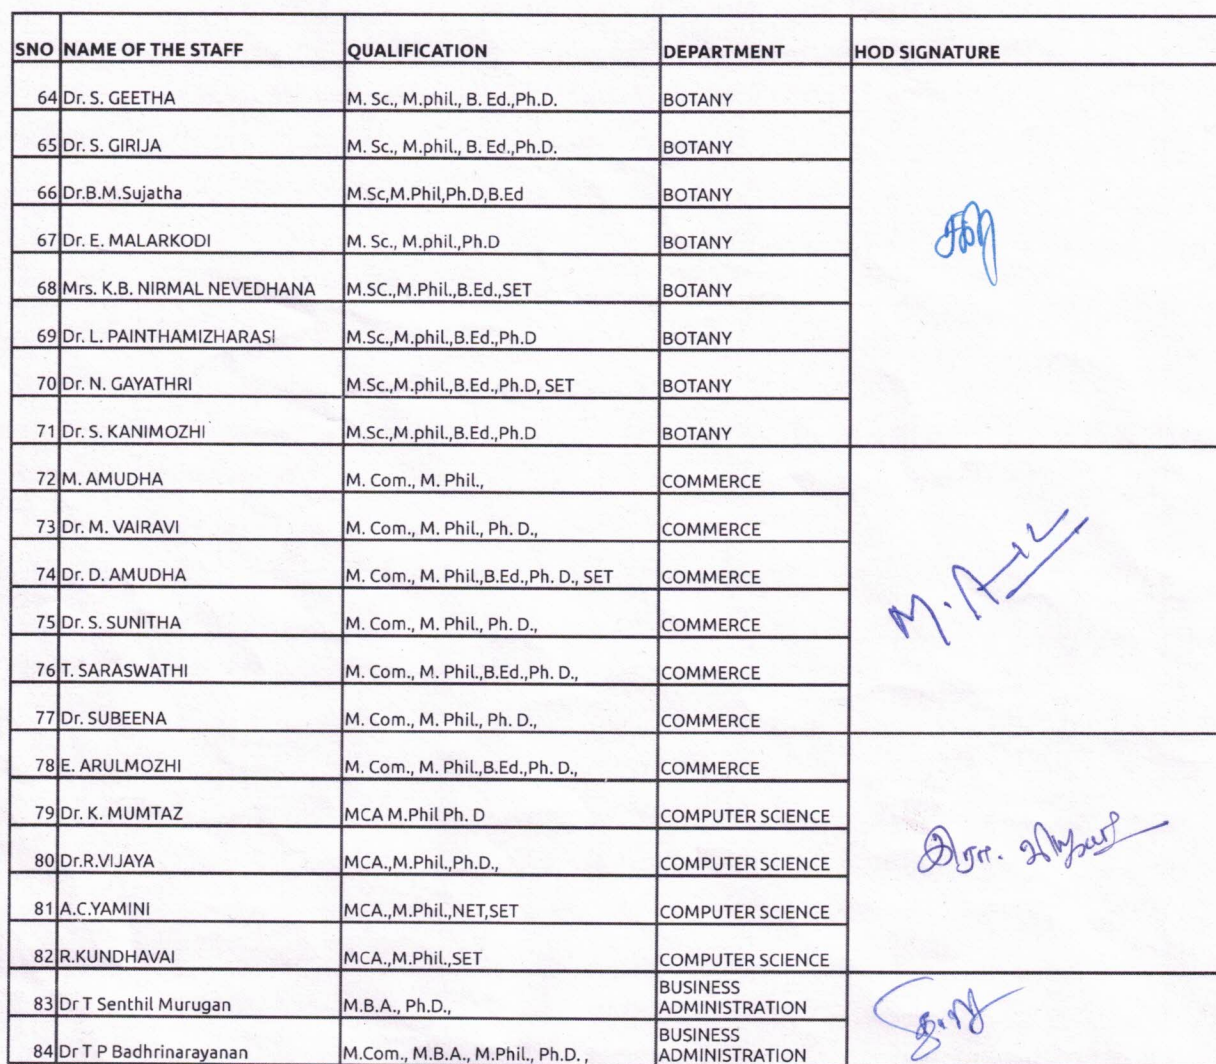 SNO NAME OF THE STAFF QUALIFICATION DEPARTMENT HOD SIGNATURE
64 Dr. S. GEETHA M. Sc., M.phil., B. Ed.,Ph.D. BOTANY
65 Dr. S. GIRIJA M. Sc., M.phil., B. Ed.,Ph.D. BOTANY
66 Dr.B.M.Sujatha M.Sc,M.Phil,Ph.D,B.Ed BOTANY
67 Dr. E. MALARKODI M. Sc., M.phil.,Ph.D BOTANY
68 Mrs. K.B. NIRMAL NEVEDHANA M.SC.,M.Phil.,B.Ed.,SET BOTANY
69 Dr. L. PAINTHAMIZHARASI M.Sc.,M.phil.,B.Ed.,Ph.D BOTANY
70 Dr. N. GAYATHRI M.Sc.,M.phil.,B.Ed.,Ph.D, SET BOTANY
71 Dr. S. KANIMOZHI M.Sc.,M.phil.,B.Ed.,Ph.D BOTANY
72 M. AMUDHA M. Com., M. Phil., COMMERCE
73 Dr. M. VAIRAVI M. Com., M. Phil., Ph. D., COMMERCE
74 Dr. D. AMUDHA M. Com., M. Phil.,B.Ed.,Ph. D., SET COMMERCE
75 Dr. S. SUNITHA M. Com., M. Phil., Ph. D., COMMERCE
76 T. SARASWATHI M. Com., M. Phil.,B.Ed.,Ph. D., COMMERCE
77 Dr. SUBEENA M. Com., M. Phil., Ph. D., COMMERCE
78 E. ARULMOZHI M. Com., M. Phil.,B.Ed.,Ph. D., COMMERCE
79 Dr. K. MUMTAZ MCA M.Phil Ph. D COMPUTER SCIENCE
80 Dr.R.VIJAYA MCA.,M.Phil.,Ph.D., COMPUTER SCIENCE
81 A.C.YAMINI MCA.,M.Phil.,NET,SET COMPUTER SCIENCE
82 R.KUNDHAVAI MCA.,M.Phil.,SET COMPUTER SCIENCE
83 Dr T Senthil Murugan M.B.A., Ph.D., BUSINESS
ADMINISTRATION
84 Dr T P Badhrinarayanan M.Com., M.B.A., M.Phil., Ph.D. , BUSINESS
ADMINISTRATION